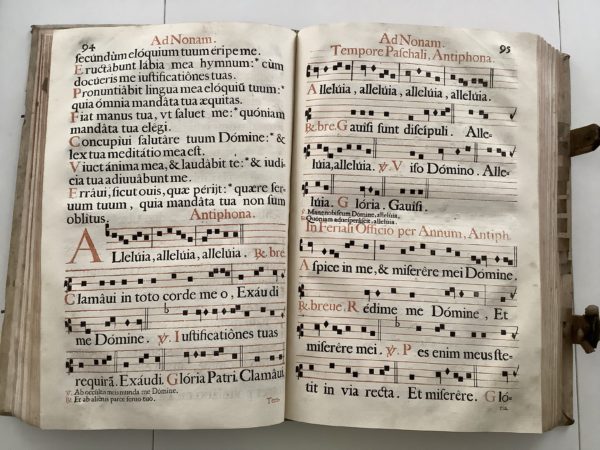 94
Ad Nonam.
secundùm elóquium tuum éripe me.
Eructâbunt labia mea hymnum:* cùm
docúeris me iustificatiónes tuas.
Pronuntiâbit lingua mea elóquiũ tuum:*
quia ómnia mandâta tua æquitas.
Fiat manus tua, vt saluet me: * quóniam
mandâta tua elégi.
Concupiui salutâre tuum Dómine: * &
lex tua meditâtio mea est.
Viuet ánima mea, & laudâbit te: * & iudi-
cia tua adiuuâbunt me.
Erráui, sicut ouis, quæ périjt: * quære ser-
uum tuum, quia mandâta tua non sum
oblîtus.
Antiphona.
Alleluia, alleluia, alleluia. ℟. bre
Clamâui in toto corde meo, Exáudi
me Dómine. ℣. Iustificatiônes tuas
requirã. Exáudi. Glória Patri. Clamâui.
℣. Ab occultis meis munda me Dómine.
℟. Et ab aliénis parce seruo tuo.
Tem-
Ad Nonam.
95
Tempore Paschali, Antiphona.
Allelúia, allelúia, allelúia, allelúia.
℟. bre. Gauisi sunt discípuli. Alle-
lúia, allelúia. ℣. Viso Dómino. Alle-
lúia. Glória. Gauisi.
℣. Mane nobiscum Dómine, allelúia.
℟. Quóniam aduesperáscit, allelúia.
In Feriali Officio per Annum, Antiph
Aspice in me, & miserêre mei Dómine.
℟. breue. Rédime me Dómine, Et
miserêre mei. ℣. Pes enim meus ste-
tit in via recta. Et miserêre. Gló-
ria.